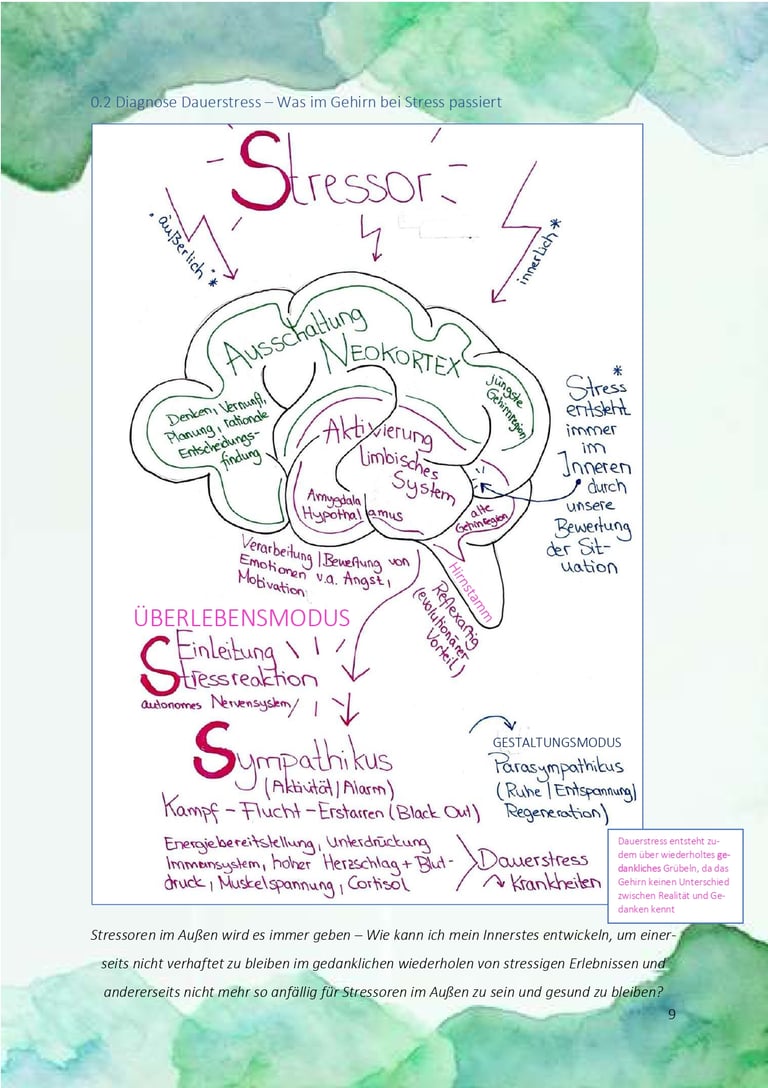 0.2 Diagnose Dauerstress – Was im Gehirn bei Stress passiert
Stressor
äußerlich *
innerlich *
Ausschaltung
NEOKORTEX
jüngste
Gehirnregion
Denken, Vernunft,
Planung, rationale
Entscheidungs-
findung
Aktivierung
limbisches
System
Amygdala
Hypothalamus
alte
Gehirnregion
*
Stress
entsteht
immer
im
Inneren
durch
unsere
Bewertung
der Sit-
uation
Verarbeitung / Bewertung von
Emotionen v.a. Angst,
Motivation
Hirnstamm
Reflexartig
(evolutionärer
Vorteil)
ÜBERLEBENSMODUS
Einleitung
Stressreaktion
autonomes Nervensystem
Sympathikus
(Aktivität / Alarm)
Kampf – Flucht – Erstarren (Black Out)
GESTALTUNGSMODUS
Parasympathikus
(Ruhe / Entspannung /
Regeneration)
Energiebereitstellung, Unterdrückung
Immunsystem, hoher Herzschlag + Blut-
druck, Muskelspannung, Cortisol
Dauerstress
Krankheiten
Dauerstress entsteht zu-
dem über wiederholtes ge-
dankliches Grübeln, da das
Gehirn keinen Unterschied
zwischen Realität und Ge-
danken kennt
Stressoren im Außen wird es immer geben – Wie kann ich mein Innerstes entwickeln, um einer-
seits nicht verhaftet zu bleiben im gedanklichen wiederholen von stressigen Erlebnissen und
andererseits nicht mehr so anfällig für Stressoren im Außen zu sein und gesund zu bleiben?
9